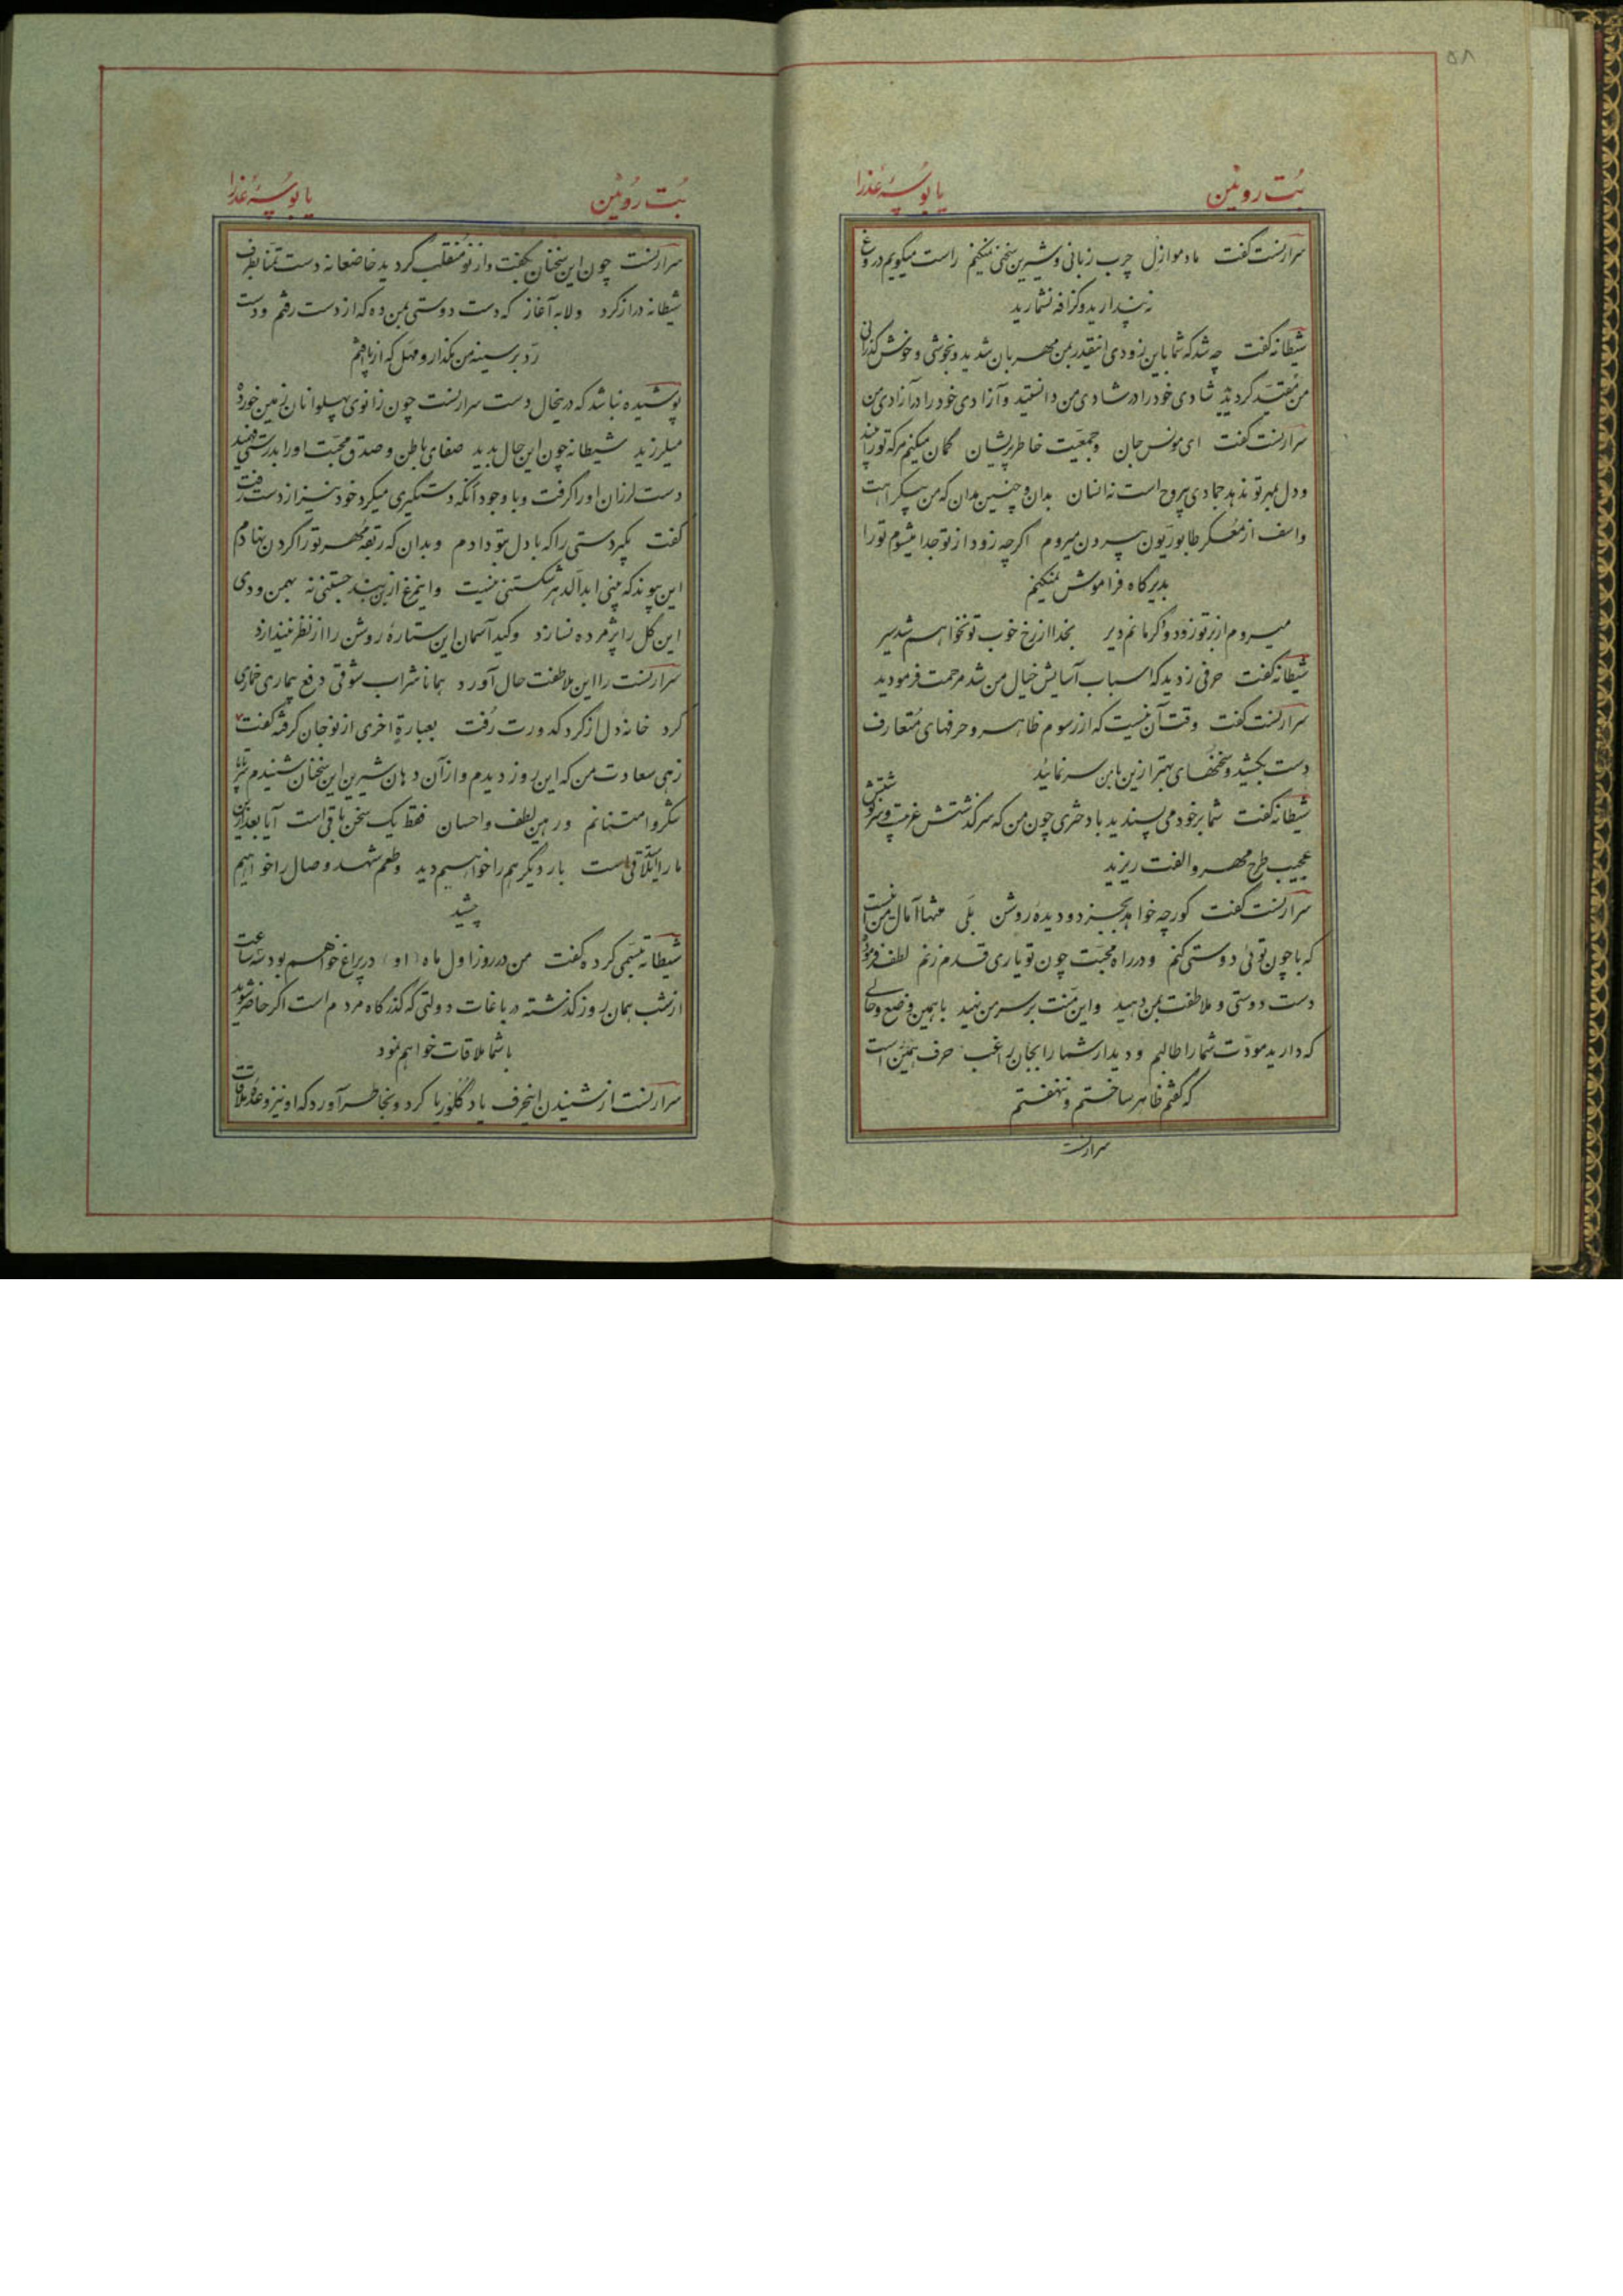 ۵۸
بُت روئین یا بوسهٔ عذرا
سرارنست گفت مادموازل چرب زبانی و شیرین سخنی نمیکنم راست میکویم دروغ
نپندارید و کزافه نشمارید
شیطانه گفت چه شد که شما باین زودی اینقدر بمن مهربان شدید و بخوشی و خوش گذرانی
من مقیّد کردید شادی خود را در شادی من دانستید و آزادی خود را در آزادی من
سرارنست گفت ای مونس جان و جمعیّت خاطر پریشان کمان میکنم هرکه تو را بیند
و دل بمهر تو ندهد جمادی بیروح است نه انسان بدان و چنین بدان که من بیکراهت
و اسف از معسکر طابوریّون بیرون میروم اکرچه زود از تو جدا میشوم تو را
بدیرکاه فراموش نمیکنم
میروم از بر تو زود و کر مانم دیر بخدا از رخ خوب تو نخواهم شد سیر
شیطانه گفت حرفی زدید که اسباب آسایش خیال من شد مرحمت فرمودید
سرارنست گفت وقت آن نیست که از رسوم ظاهر و حرفهای متعارف
دست بکشید و سخنهای بهتر ازین با من سر نمائید
شیطانه گفت شما بر خود می پسندید با دختری چون من که سرکذشتش غریب و سرنوشتش
عجیب طرح مهر و الفت ریزید
سرارنست گفت کور چه خواهد بجز دو دیدهٔ روشن بلی منتها آمال من اینست
که با چون توئی دوستی کنم و در راه محبّت چون تو یاری قدم زنم لطف فرموده
دست دوستی و ملاطفت بمن دهید و این منّت بر سر من نهید با همین وضع و حالی
که دارید مودّت شما را طالبم و دیدار شما را بجان راغب حرف همین است
که گفتم ظاهر ساختم و ننهفتم
سرارنست
بُت روئین یا بوسهٔ عذرا
سرارنست چون این سخنان بکفت و از نو منقلب کردید خاضعانه دست تمنّا بطرف
شیطانه دراز کرد و لابه آغاز که دست دوستی بمن ده که از دست رفتم و دست
رد بر سینه من مکذار و مهل که از پا افتم
پوشیده نباشد که درینحال دست سرارنست چون زانوی پهلوانان زمین خورده
میلرزید شیطانه چون این حال بدید صفای باطن و صدق محبّت او را بدرستی فهمید
دست لرزان او را کرفت و با وجود آنکه دستکیری میکرد خود نیز از دست رفت
گفت بکیر دستی را که با دل بتو دادم و بدان که ربقهٔ مهر تو را کردن نهادم
این پیوند که بینی ابد الدهر شکستنی نیست و این مرغ ازین بند جستنی نه بهمن و دی
این گل را پژمرده نسازد و کید آسمان این ستارهٔ روشن را از نظر نیندازد
سرارنست را این ملاطفت حال آورد همانا شراب شوقی دفع بیماری خماری
کرد خانهٔ دل از کرد کدورت رُفت بعبارةٍ اخری از نو جان کرفته گفت
زهی سعادت من که این روز دیدم و از آن دهان شیرین این سخنان شنیدم سرتاپا
شکر و امتنانم و رهین لطف و احسان فقط یک سخن باقی است آیا بعد ازین
ما را تلاقی است بار دیکر هم را خواهیم دید و طعم شهد وصال را خواهیم
چشید
شیطانه تبسّمی کرده گفت من در روز اول ماه (او) در پراغ خواهم بود سه ساعت
از شب همان روز کذشته در باغات دولتی که کذرکاه مردم است اکر حاضر شوید
با شما ملاقات خواهم نمود
سرارنست از شنیدن اینحرف یاد گلوریا کرد و بخاطر آورد که او نیز وعدهٔ ملاقات